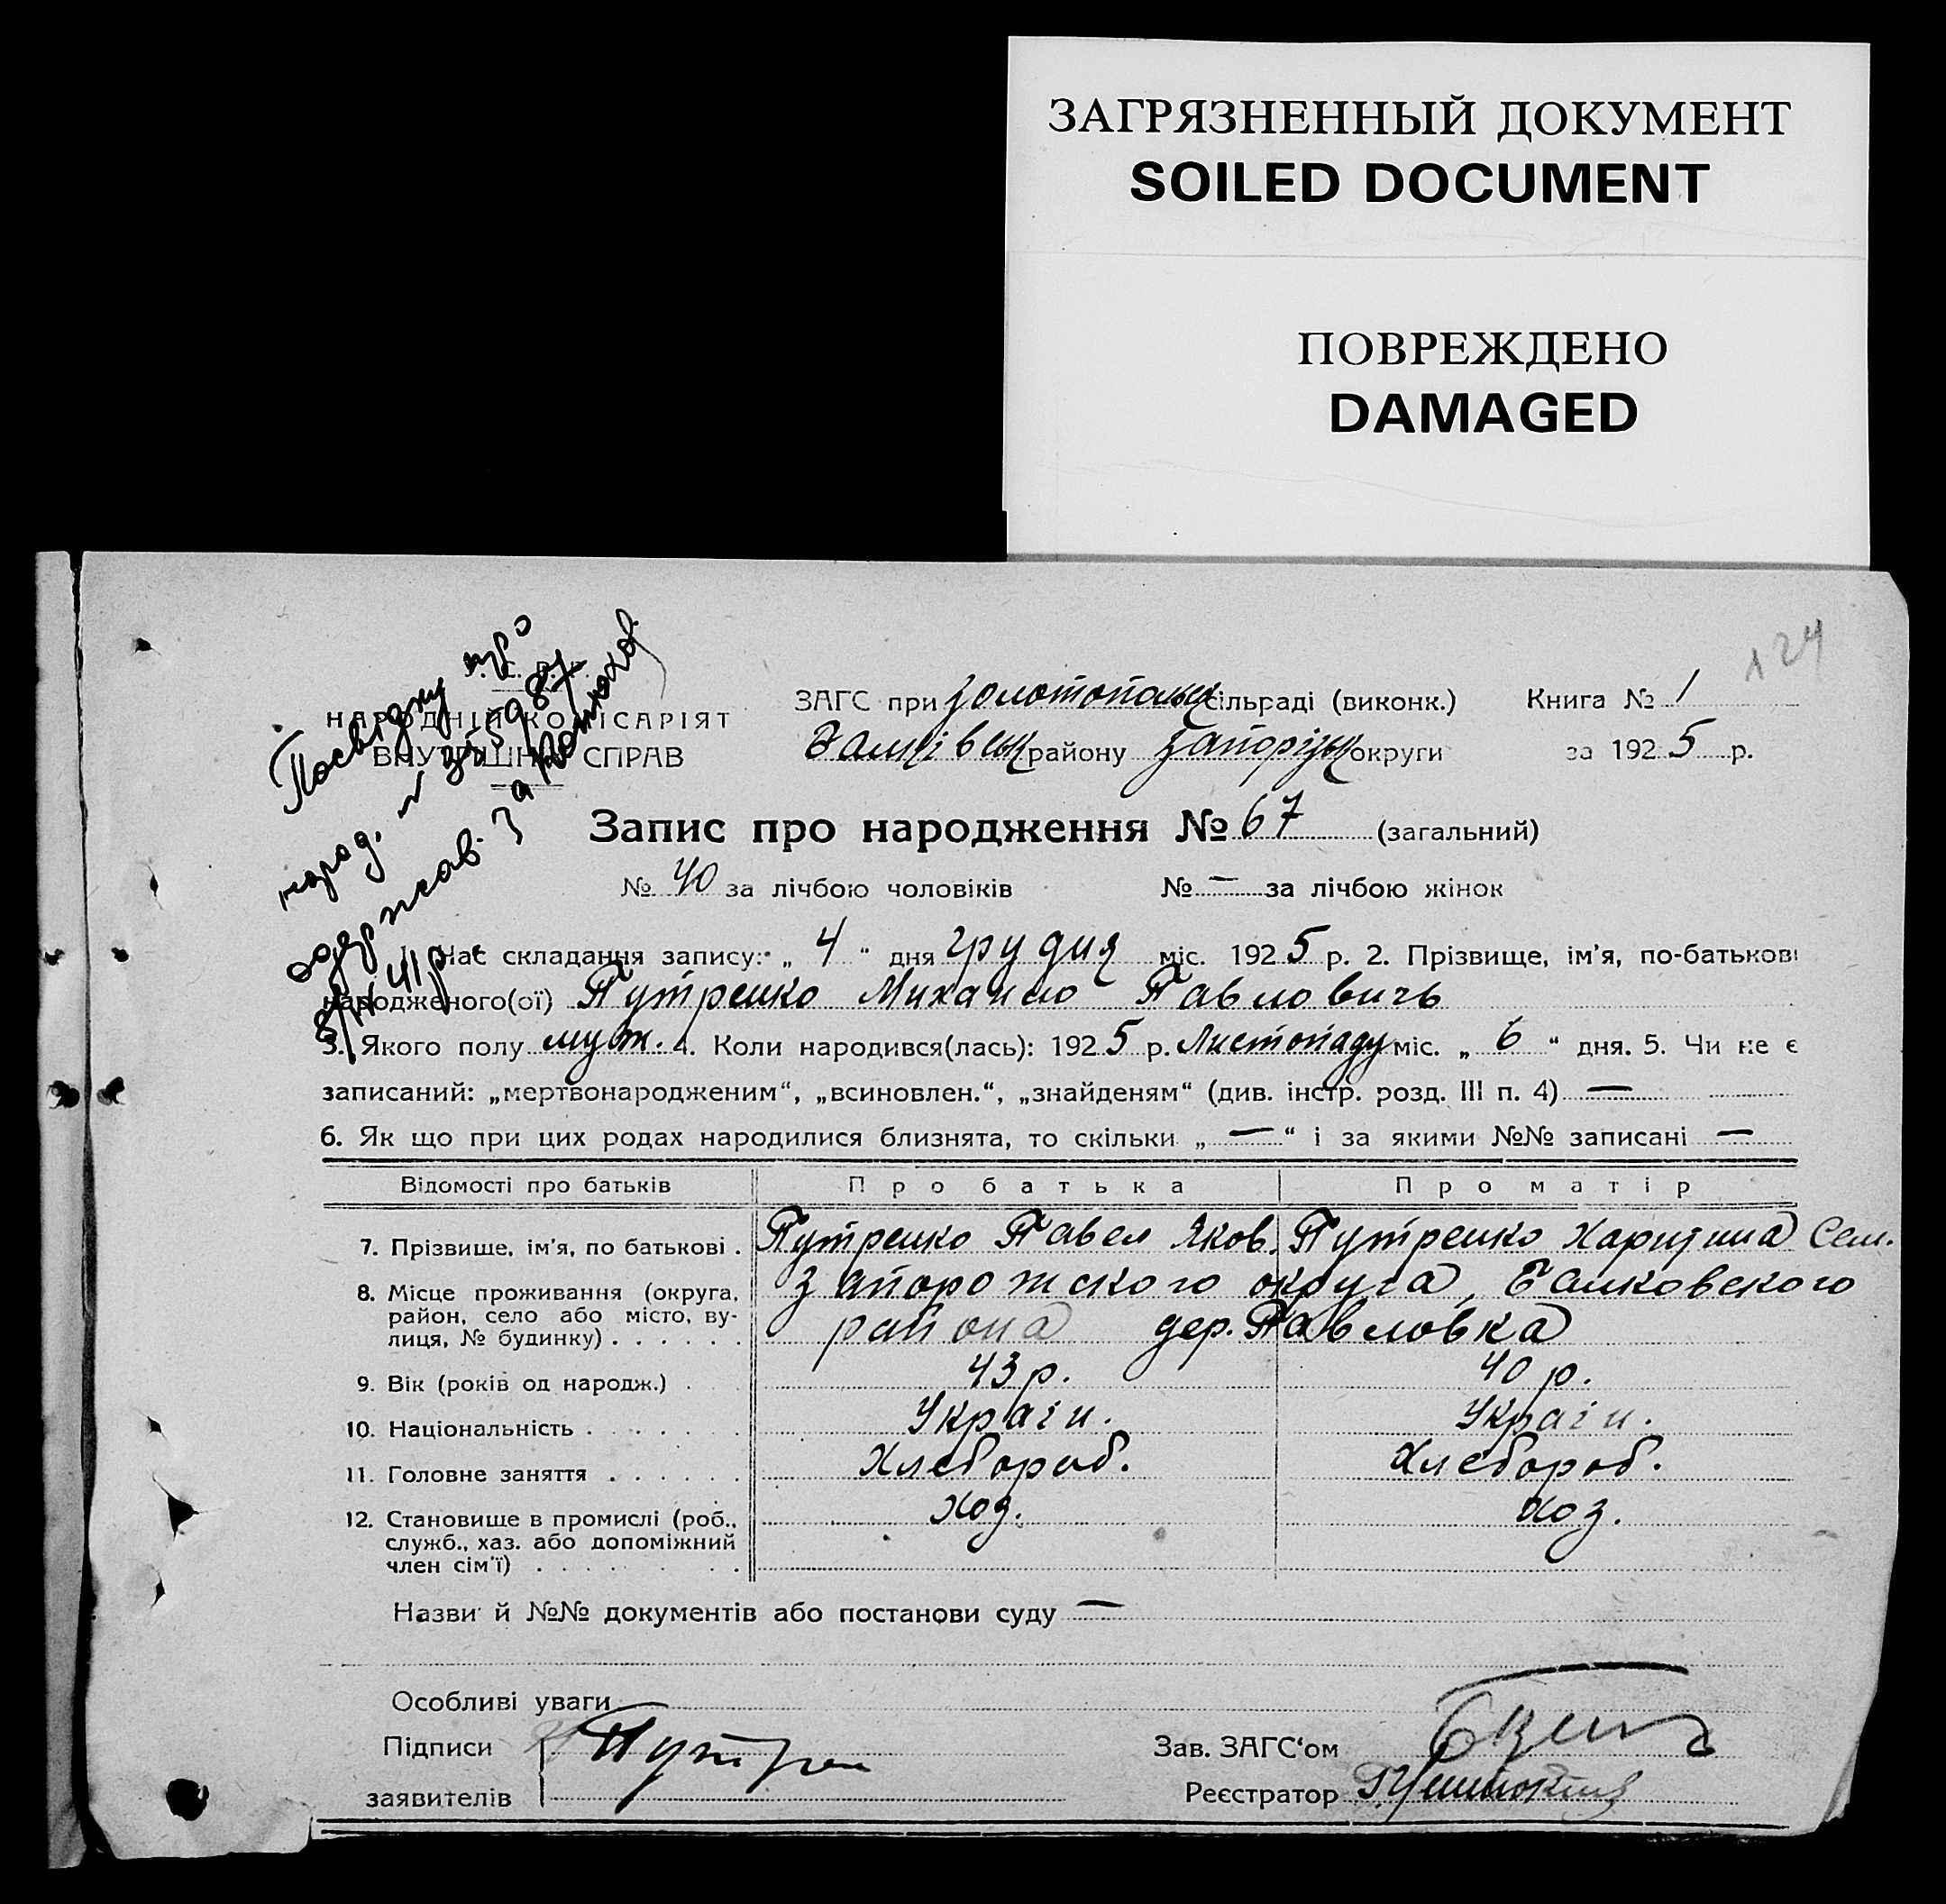 ЗАГРЯЗНЕННЫЙ ДОКУМЕНТ
SOILED DOCUMENT
ПОВРЕЖДЕНО
DAMAGED
124
Посвідку про
народ. № 355987
одержав. за
8/IV 41р.
НАРОДНІЙ КОМІСАРІЯТ
ВНУТРІШНІХ СПРАВ
ЗАГС при Золотопольск сільраді (виконк.) Книга № 1
району Запорізьк округи за 1925 р.
Запис про народження № 67 (загальний)
№ 40 за лічбою чоловіків № — за лічбою жінок
1. Час складання запису: „ 4 “ дня грудня міс. 1925 р. 2. Прізвище, ім'я, по-батькові
народженого(ої) Путренко Михайло Павловичь
3. Якого полу муж. 4. Коли народився(лась): 1925 р. Листопаду міс. „ 6 “ дня. 5. Чи не є
записаний: „мертвонародженим“, „всиновлен.“, „знайденям“ (див. інстр. розд. III п. 4) —
6. Як що при цих родах народилися близнята, то скільки „ — “ і за якими №№ записані —
Відомості про батьків Про батька Про матір
7. Прізвище, ім'я, по батькові . Путренко Павел Яков. Путренко Харитина Сем.
8. Місце проживання (округа, Запорожского округа, Балковского
район, село або місто, ву-
лиця, № будинку) . . . . . . района дер. Павловка
9. Вік (років од народж.) . . 43 р. 40 р.
10. Національність . . . . . . Україн. Україн.
11. Головне заняття . . . . . . Хлебороб. Хлебороб.
12. Становище в промислі (роб., хоз. хоз.
служб., хаз. або допоміжний
член сім'ї) . . . . . . .
Назви й №№ документів або постанови суду —
Особливі уваги
Підписи Путрен
Зав. ЗАГС‘ом
заявителів
Реєстратор